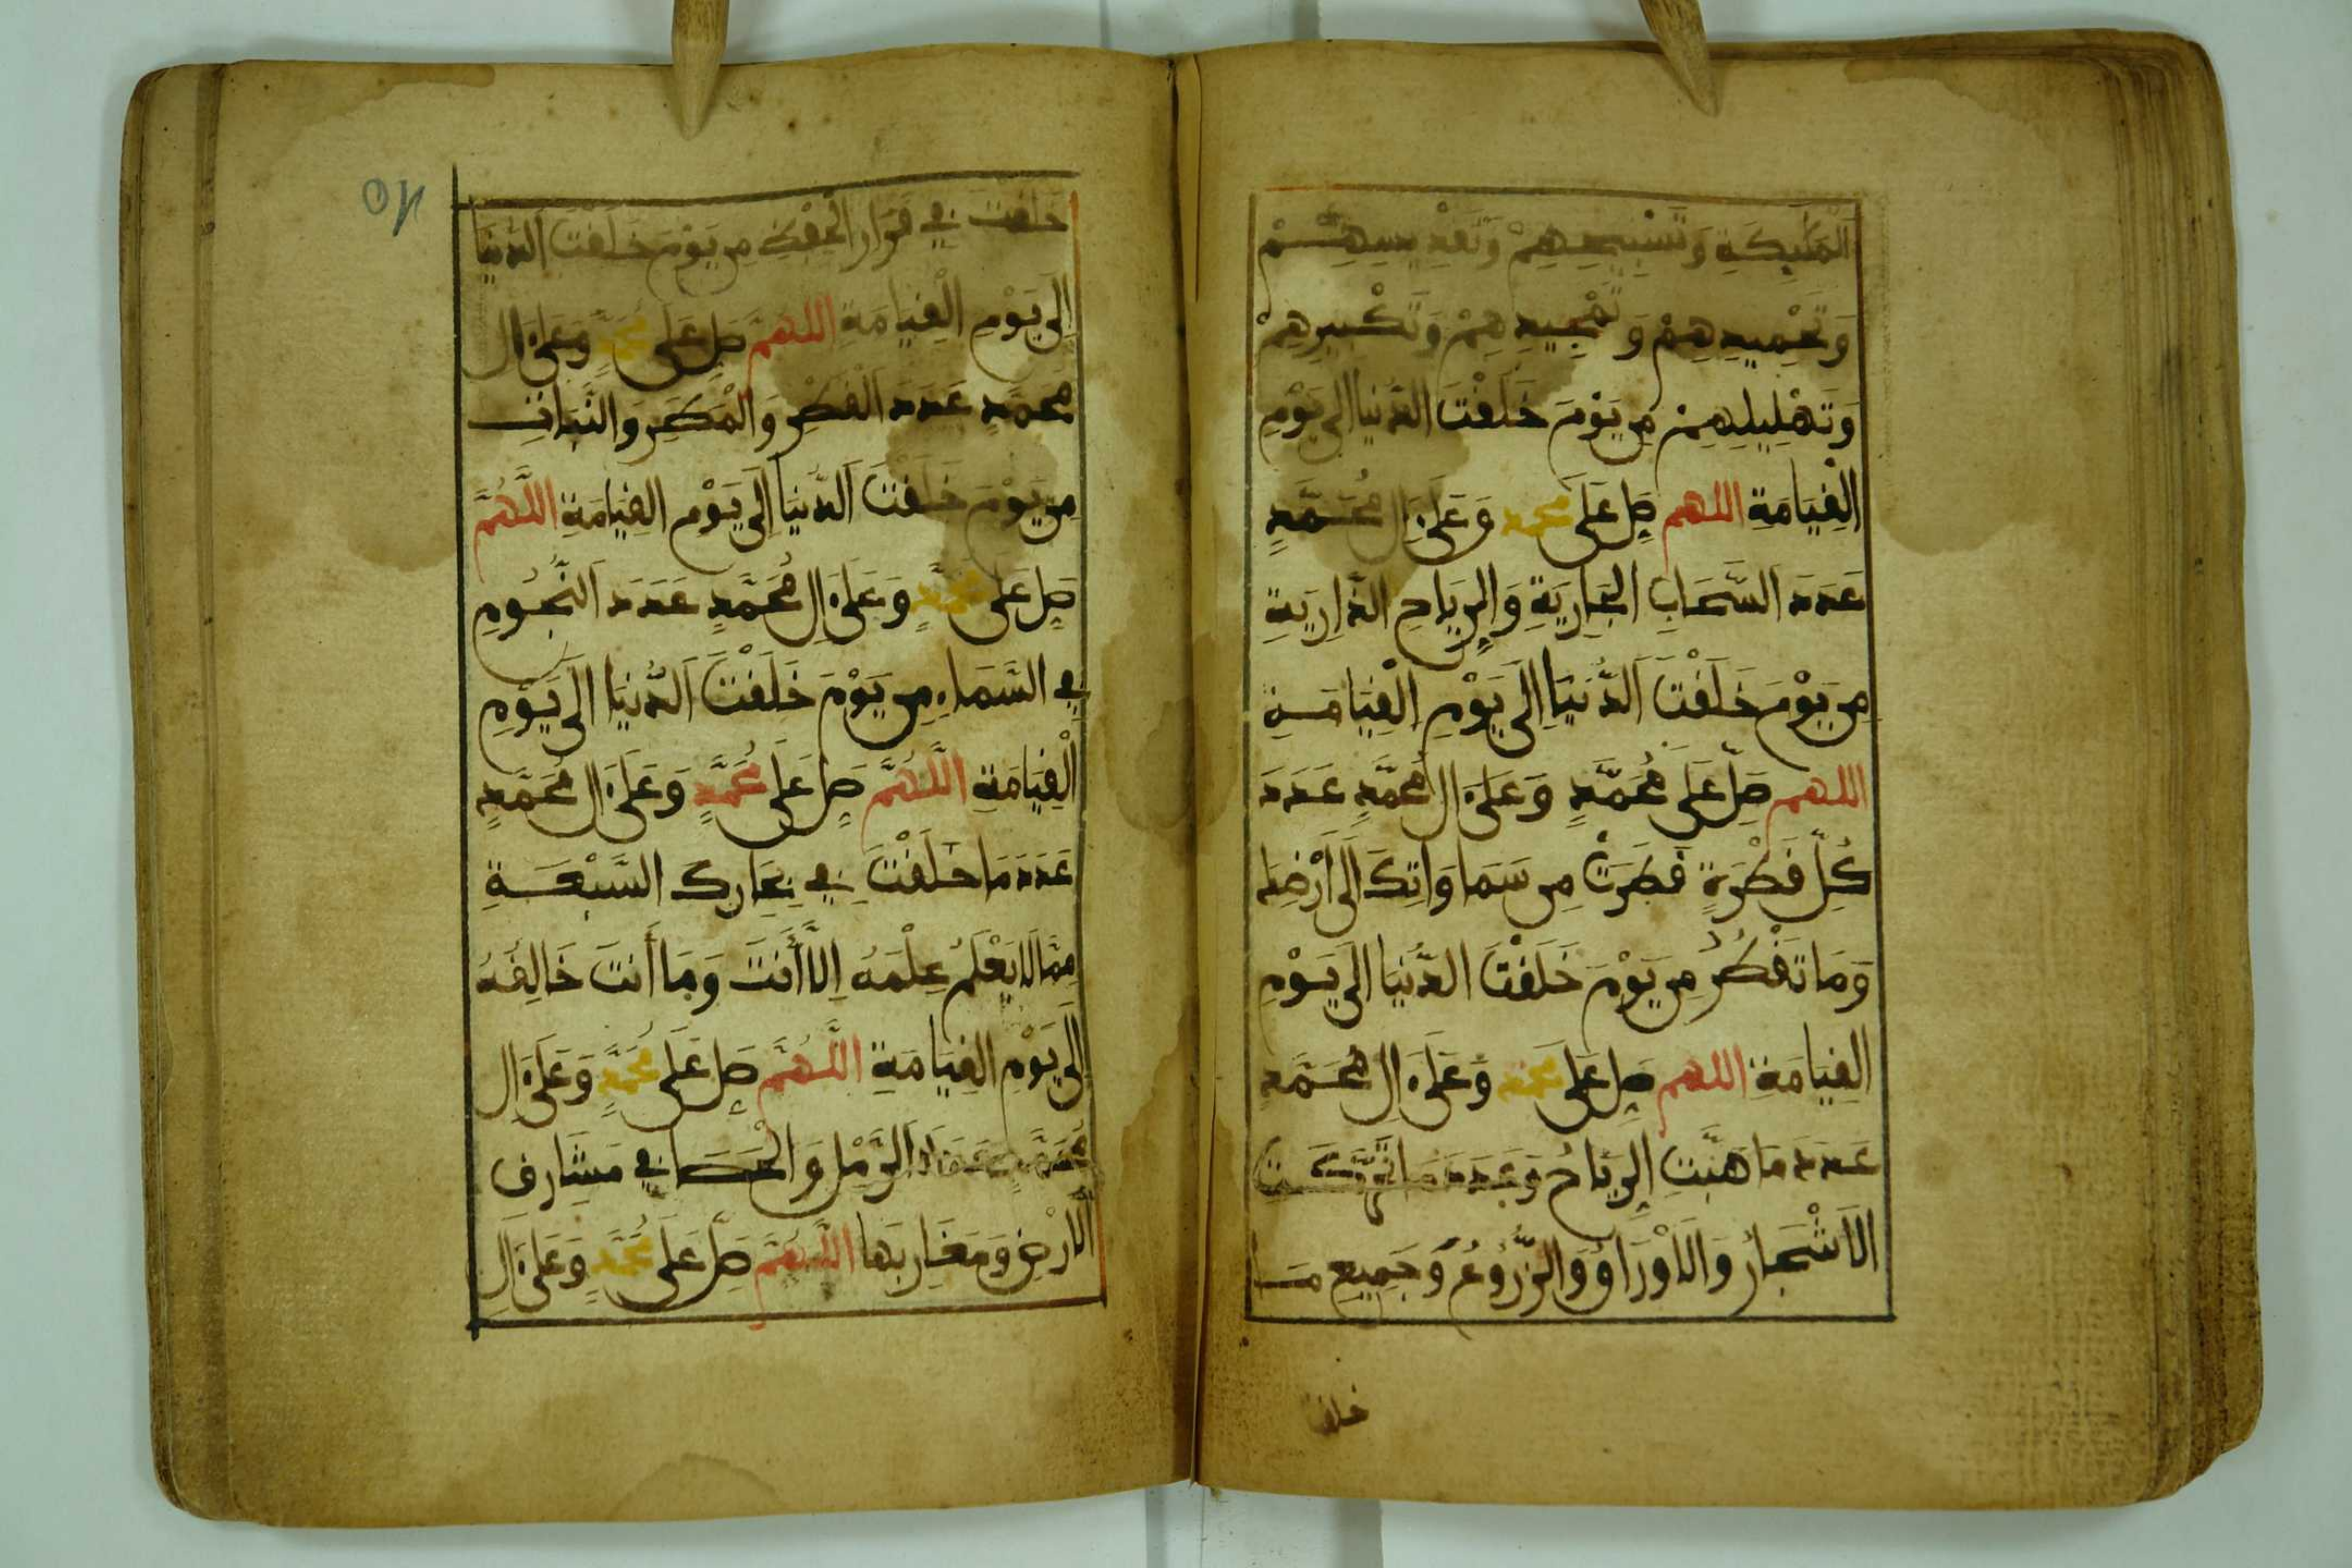 الْمَلَٰئِكَةِ وَتَسْبِيحِهِمْ وَتَقْدِيسِهِمْ
وَتَحْمِيدِهِمْ وَتَمْجِيدِهِمْ وَتَكْبِيرِهِمْ
وَتَهْلِيلِهِمْ مِن يَوْمَ خَلَقْتَ الدُّنْيَا إِلَى يَوْمِ
الْقِيَامَةِ اللهم صَلِّ عَلَى محمد وَعَلَىٰ ءَالِ مُحَمَّدٍ
عَدَدَ السَّحَابِ الْجَارِيَةِ وَالرِّيَاحِ الذَّارِيَةِ
مِن يَوْمَ خَلَقْتَ الدُّنْيَا إِلَى يَوْمِ الْقِيَامَةِ
اللهم صَلِّ عَلَى مُحَمَّدٍ وَعَلَىٰ ءَالِ مُحَمَّدٍ عَدَدَ
كُلِّ قَطْرَةٍ قَطَرَتْ مِن سَمَاوَاتِكَ إِلَى أَرْضِكَ
وَمَا تَقْطُرُ مِن يَوْمَ خَلَقْتَ الدُّنْيَا إِلَى يَوْمِ
الْقِيَامَةِ اللهم صَلِّ عَلَى محمد وَعَلَىٰ ءَالِ مُحَمَّدٍ
عَدَدَ مَا هَبَّتِ الرِّيَاحُ وَعَدَدَ مَا تَحَرَّكَتِ
الْأَشْجَارُ وَالْأَوْرَاقُ وَالزُّرُوعُ وَجَمِيعِ مَا
خلقت
خَلَقْتَ فِي قَرَارِ الْحِفْظِ مِن يَوْمَ خَلَقْتَ الدُّنْيَا
إِلَى يَوْمِ الْقِيَامَةِ اللهم صَلِّ عَلَى مُحَمَّدٍ وَعَلَىٰ ءَالِ
مُحَمَّدٍ عَدَدَ الْقَطْرِ وَالْمَطَرِ وَالنَّبَاتِ
مِن يَوْمَ خَلَقْتَ الدُّنْيَا إِلَى يَوْمِ الْقِيَامَةِ اللَّهُمَّ
صَلِّ عَلَى مُحَمَّدٍ وَعَلَىٰ ءَالِ مُحَمَّدٍ عَدَدَ النُّجُومِ
فِي السَّمَاءِ مِن يَوْمَ خَلَقْتَ الدُّنْيَا إِلَى يَوْمِ
الْقِيَامَةِ اللَّهُمَّ صَلِّ عَلَى مُحَمَّدٍ وَعَلَىٰ ءَالِ مُحَمَّدٍ
عَدَدَ مَا خَلَقْتَ فِي بِحَارِكَ السَّبْعَةِ
مِمَّا لَا يَعْلَمُ عِلْمَهُ إِلَّا أَنتَ وَمَا أَنتَ خَالِقُهُ
إِلَى يَوْمِ الْقِيَامَةِ اللَّهُمَّ صَلِّ عَلَى مُحَمَّدٍ وَعَلَىٰ ءَالِ
مُحَمَّدٍ عَدَدَ الرَّمْلِ وَالْحَصَا فِي مَشَارِقِ
الْأَرْضِ وَمَغَارِبِهَا اللَّهُمَّ صَلِّ عَلَى مُحَمَّدٍ وَعَلَىٰ ءَالِ